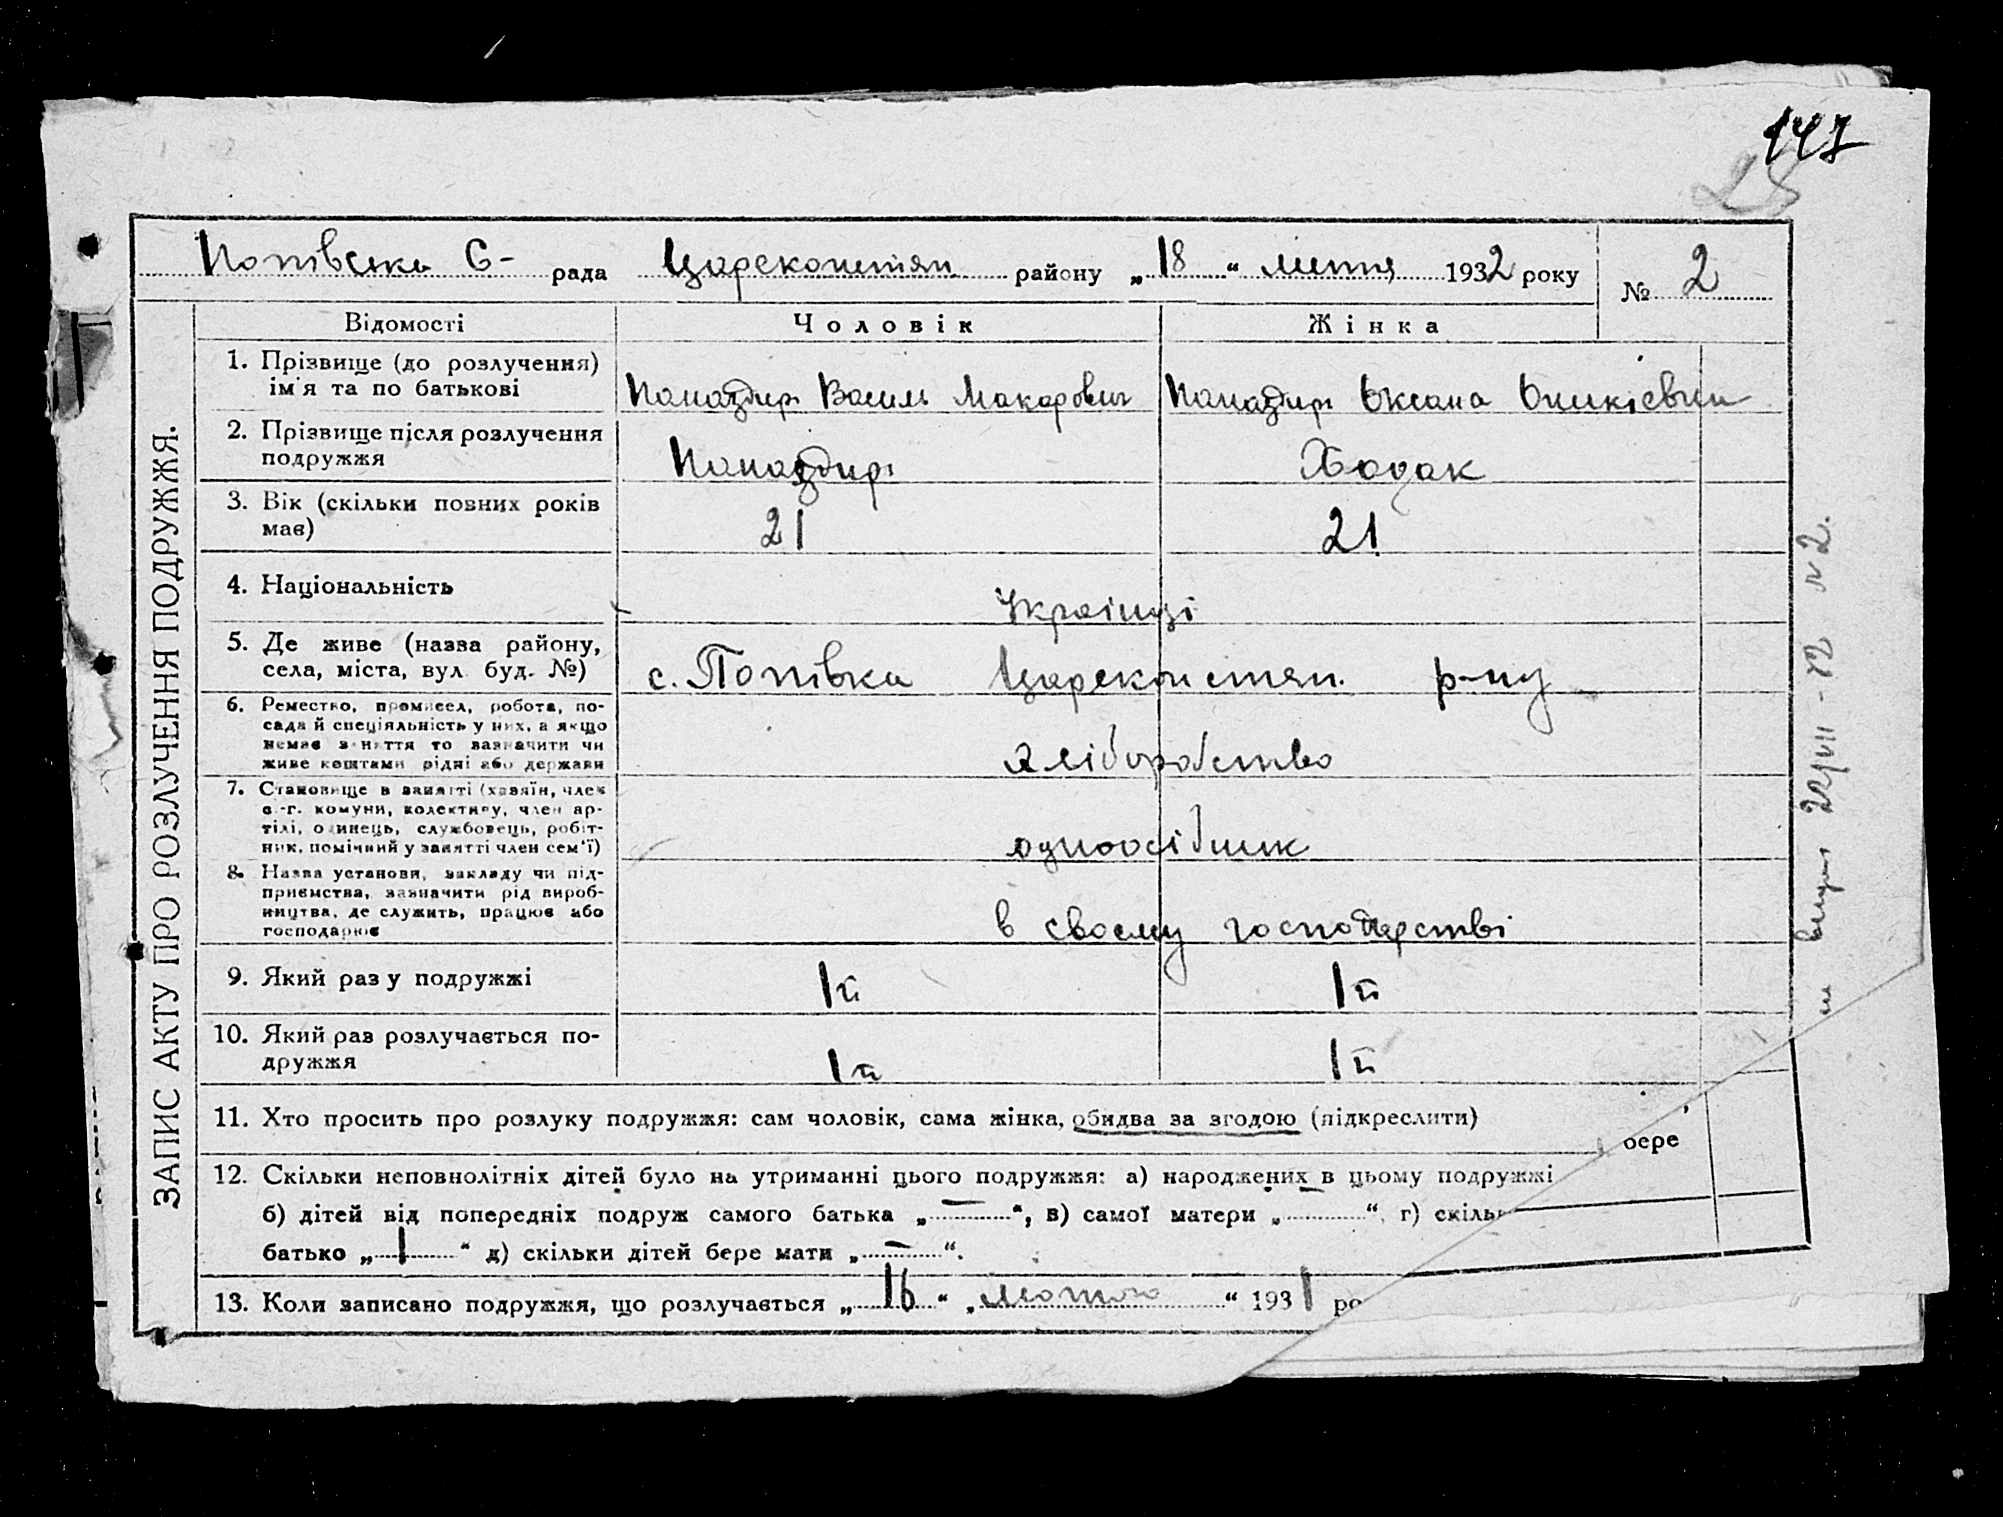 147
28
Попівська С- рада Царекопстян району „18“ липня 1932 року № 2
ЗАПИС АКТУ ПРО РОЗЛУЧЕННЯ ПОДРУЖЖЯ.
Відомості Чоловік Жінка
1. Прізвище (до розлучення) ім'я та по батькові
Паназдир Василь Макарович Паназдир Оксана
2. Прізвище після розлучення подружжя
Паназдир Ходак
3. Вік (скільки повних років має)
21 21
4. Національність
Українці
5. Де живе (назва району, села, міста, вул. буд. №)
с. Попівка р-ну
6. Ремество, промисел, робота, по-
сада й спеціяльність у них, а якщо
немає заняття то зазначити чи
живе коштами рідні або держави
хліборобство
7. Становище в занятті (хазяїн, член
с.-г. комуни, колективу, член ар-
тілі, одинець, службовець, робіт-
ник, помічний у занятті член сем'ї)
одноосібник
8. Назва установи, закладу чи під-
приємства, зазначити рід вироб-
ництва, де служить, працює або
господарює
в своєму господарстві
9. Який раз у подружжі
1й 1й
10. Який раз розлучається по-
дружжя
1й 1й
11. Хто просить про розлуку подружжя: сам чоловік, сама жінка, обидва за згодою (підкреслити)
бере
12. Скільки неповнолітніх дітей було на утриманні цього подружжя: а) народжених в цьому подружжі
б) дітей від попередніх подруж самого батька „—“, в) самої матери „—“, г) скіль
батько „1“ д) скільки дітей бере мати „—“.
13. Коли записано подружжя, що розлучається „16“ „лютого“ 1931 ро
22/VII - 32 №2.